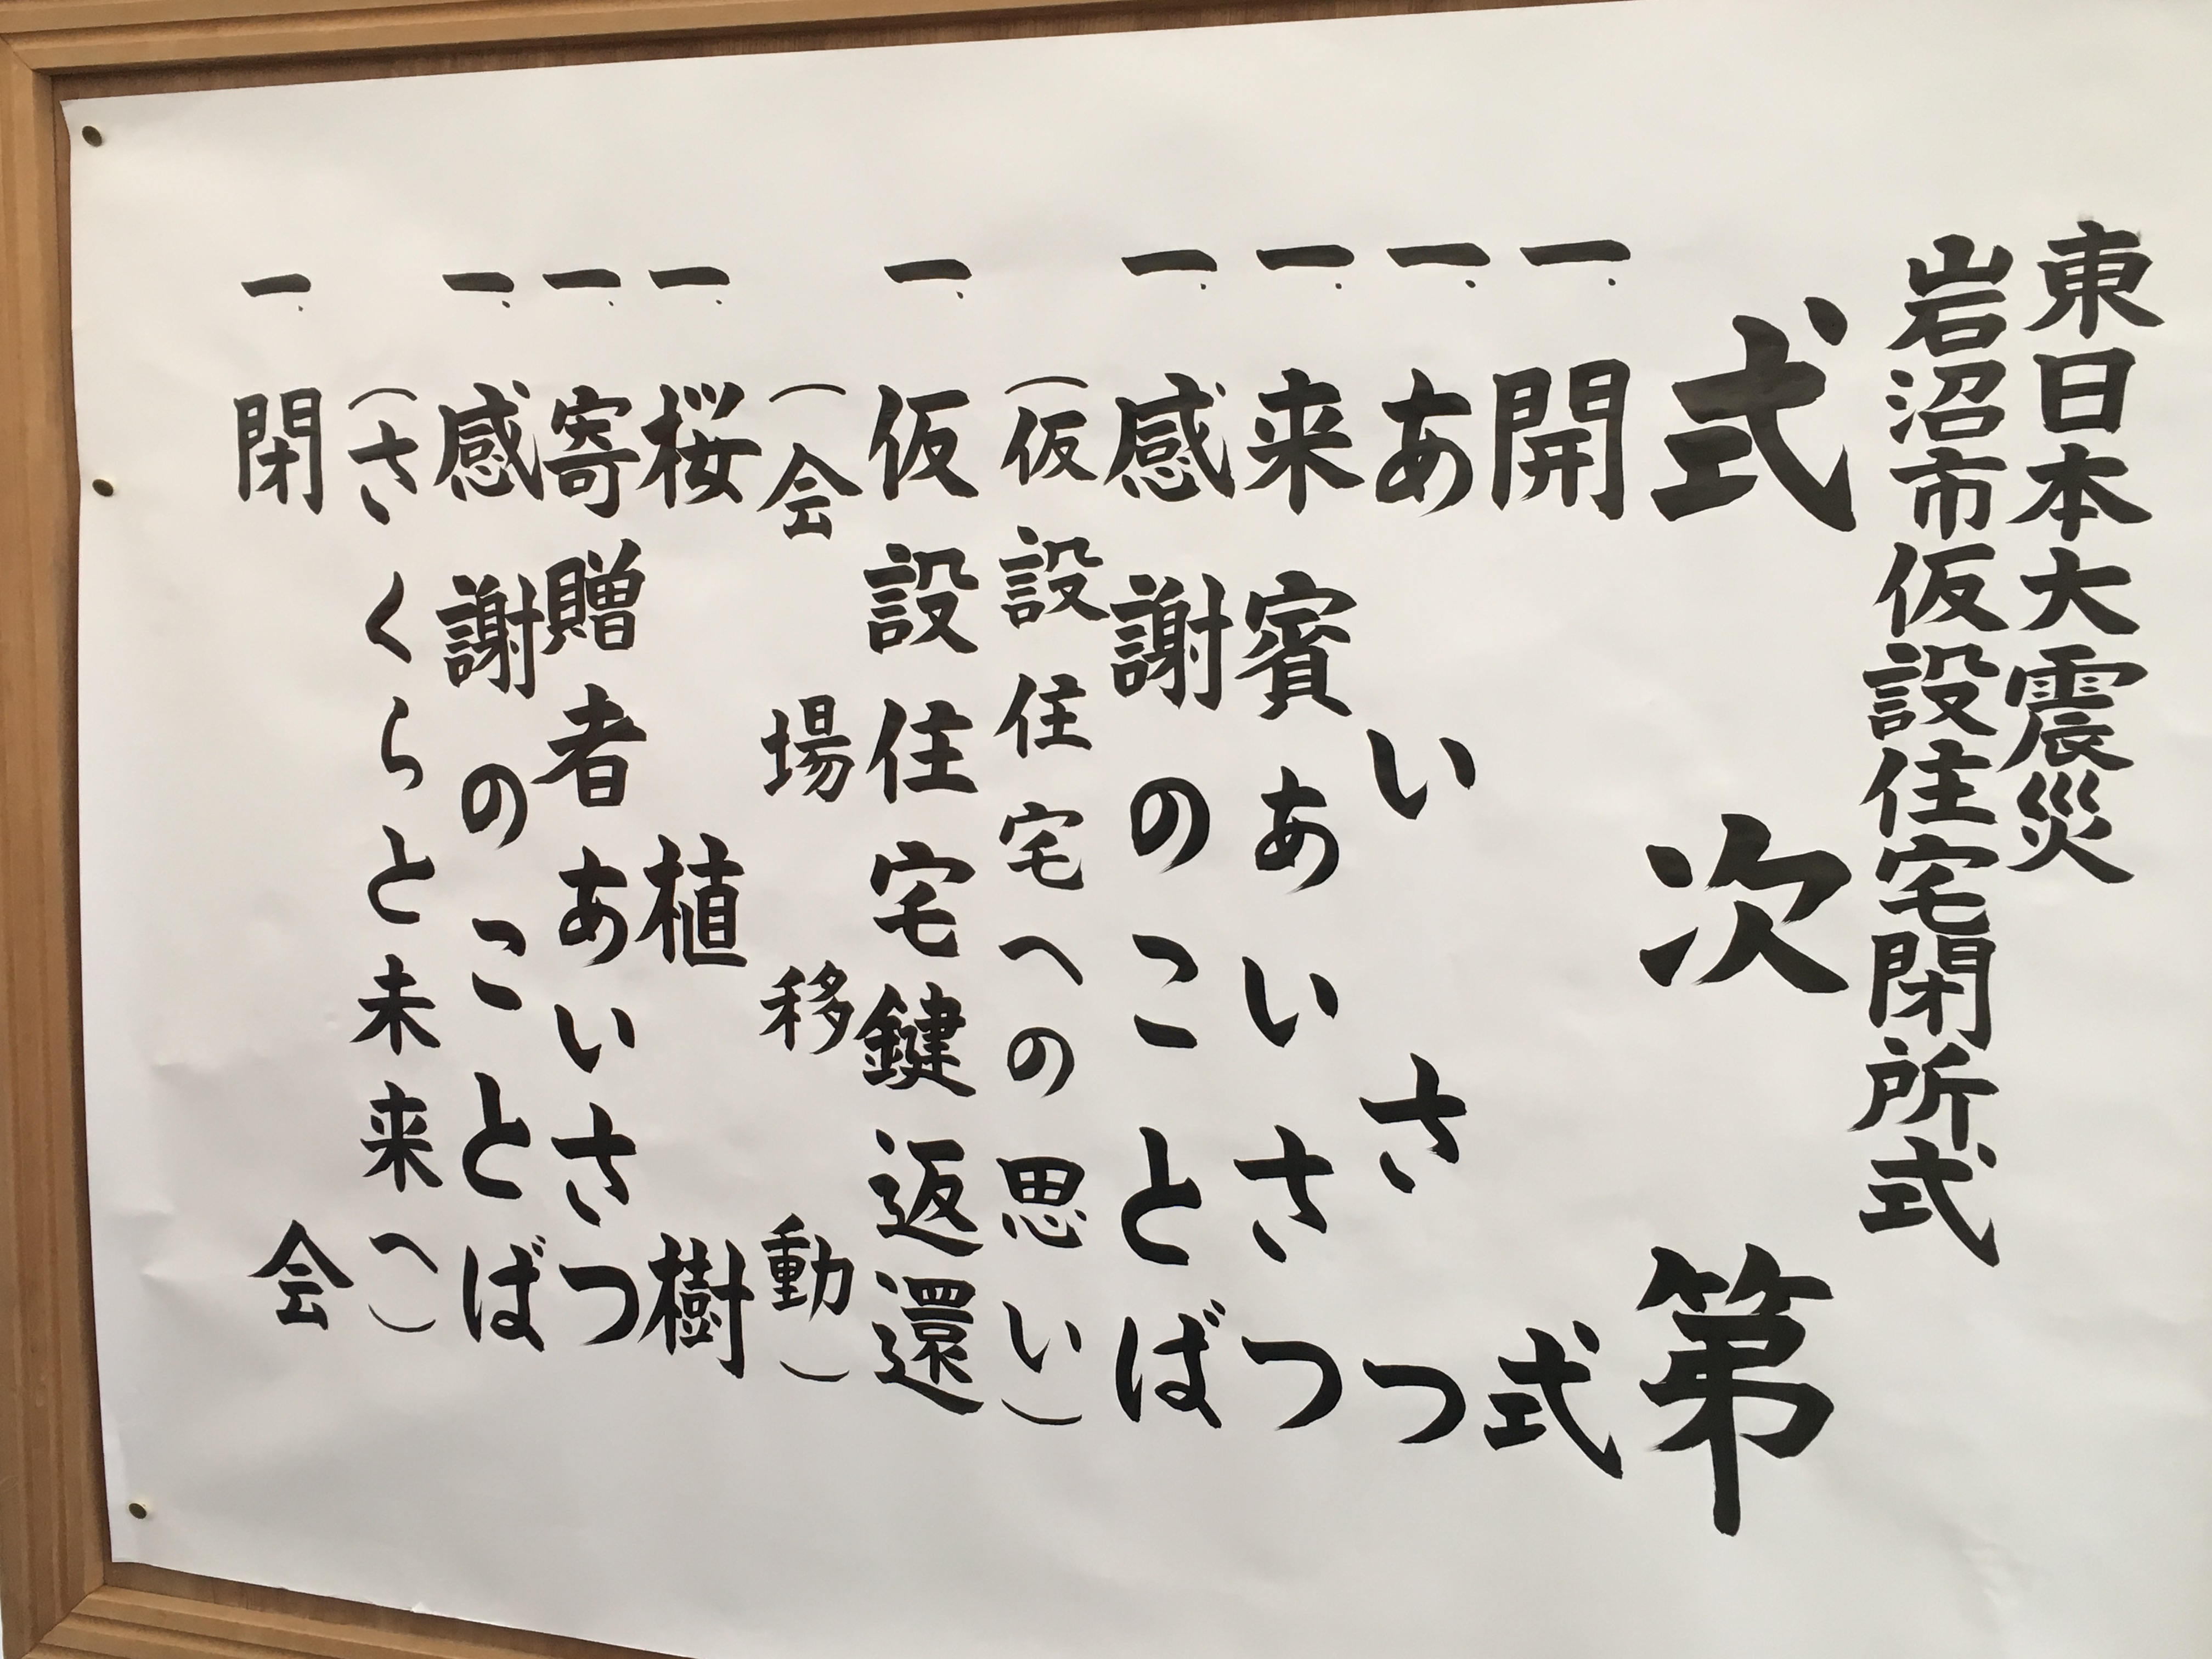 東日本大震災
岩沼市仮設住宅閉所式
式次第
一.開式
一.あいさつ
一.来賓あいさつ
一.感謝のことば
(仮設住宅への思い)
一.仮設住宅鍵返還
(会場移動)
一.桜植樹
一.寄贈者あいさつ
一.感謝のことば
(さくらと未来へ)
一.閉会